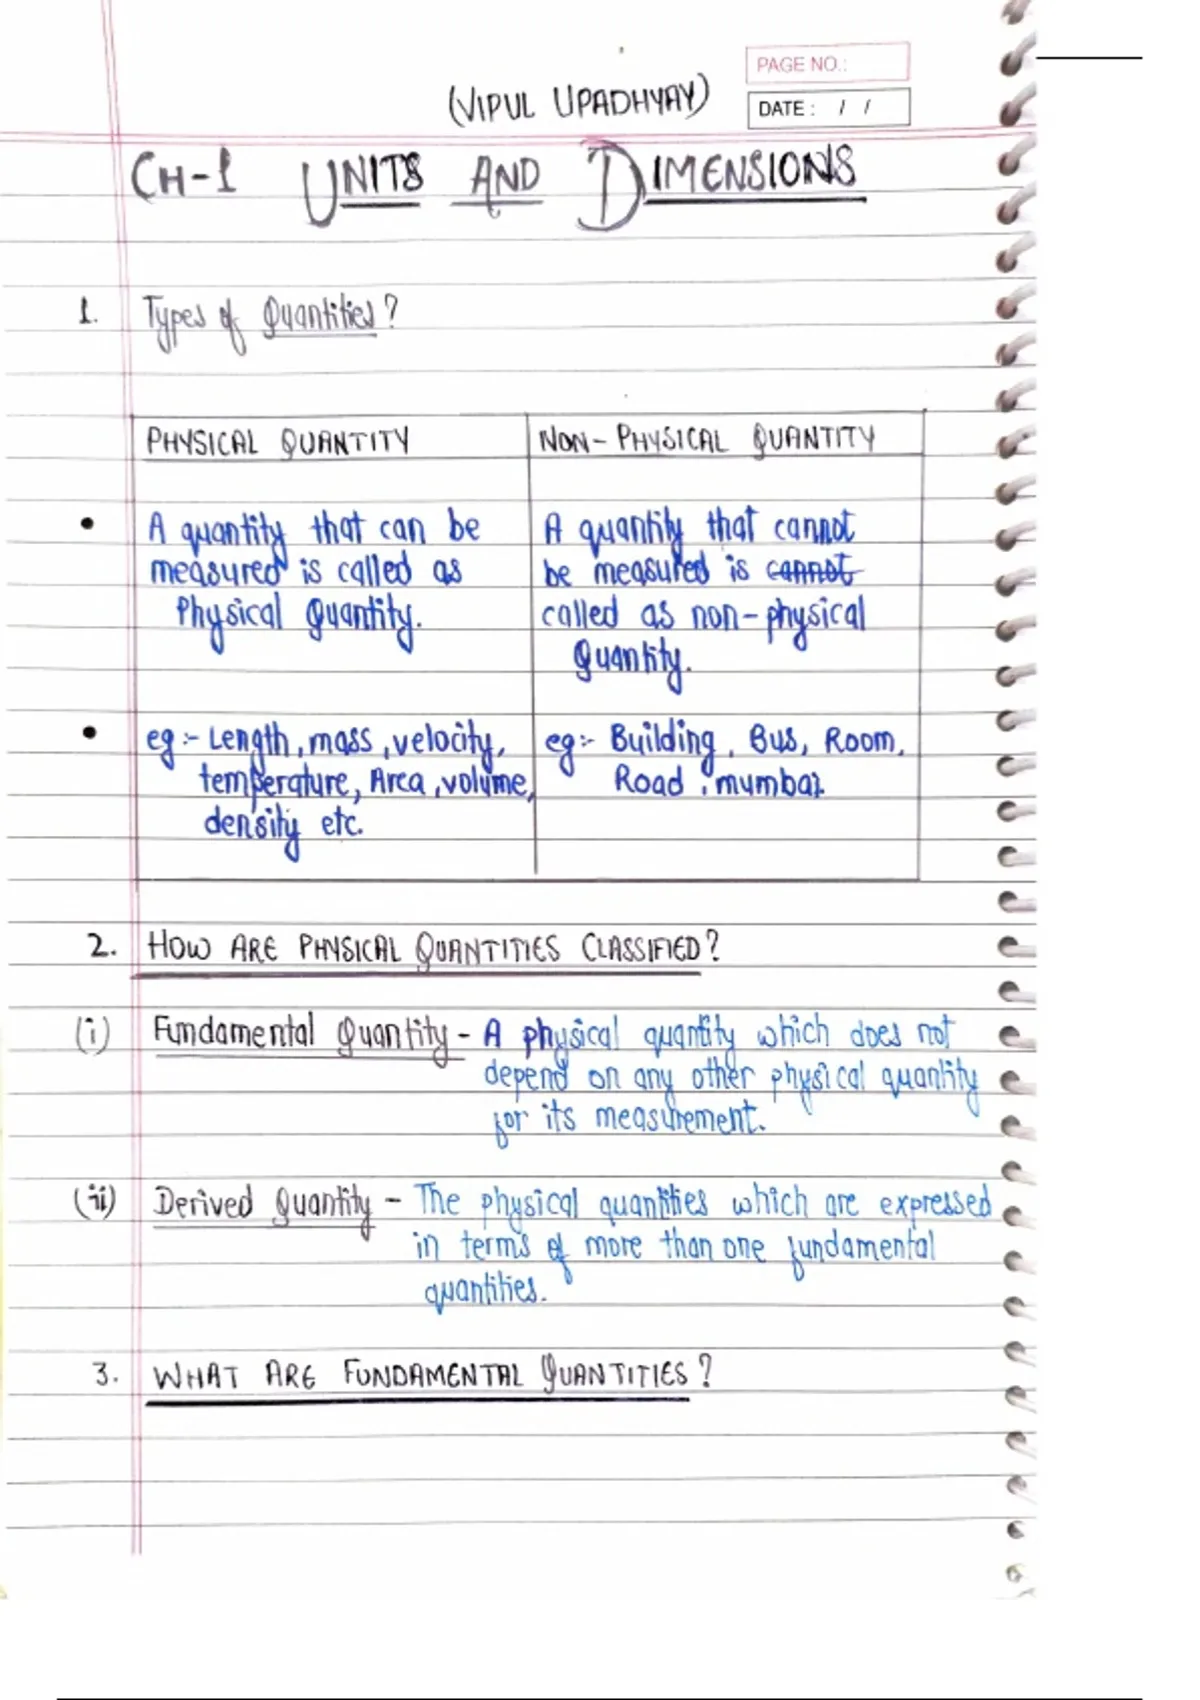 PAGE NO.:
(VIPUL UPADHYAY)
DATE : / /
CH-1 UNITS AND DIMENSIONS
1. Types of Quantities?
PHYSICAL QUANTITY NON-PHYSICAL QUANTITY
• A quantity that can be A quantity that cannot
measured is called as be measured is cannot
Physical Quantity. called as non-physical
Quantity.
• eg :- Length, mass, velocity, eg :- Building, Bus, Room,
temperature, Area, volume, Road, mumbai.
density etc.
2. HOW ARE PHYSICAL QUANTITIES CLASSIFIED?
(i) Fundamental Quantity - A physical quantity which does not
depend on any other physical quantity
for its measurement.
(ii) Derived Quantity - The physical quantities which are expressed
in terms of more than one fundamental
quantities.
3. WHAT ARE FUNDAMENTAL QUANTITIES?